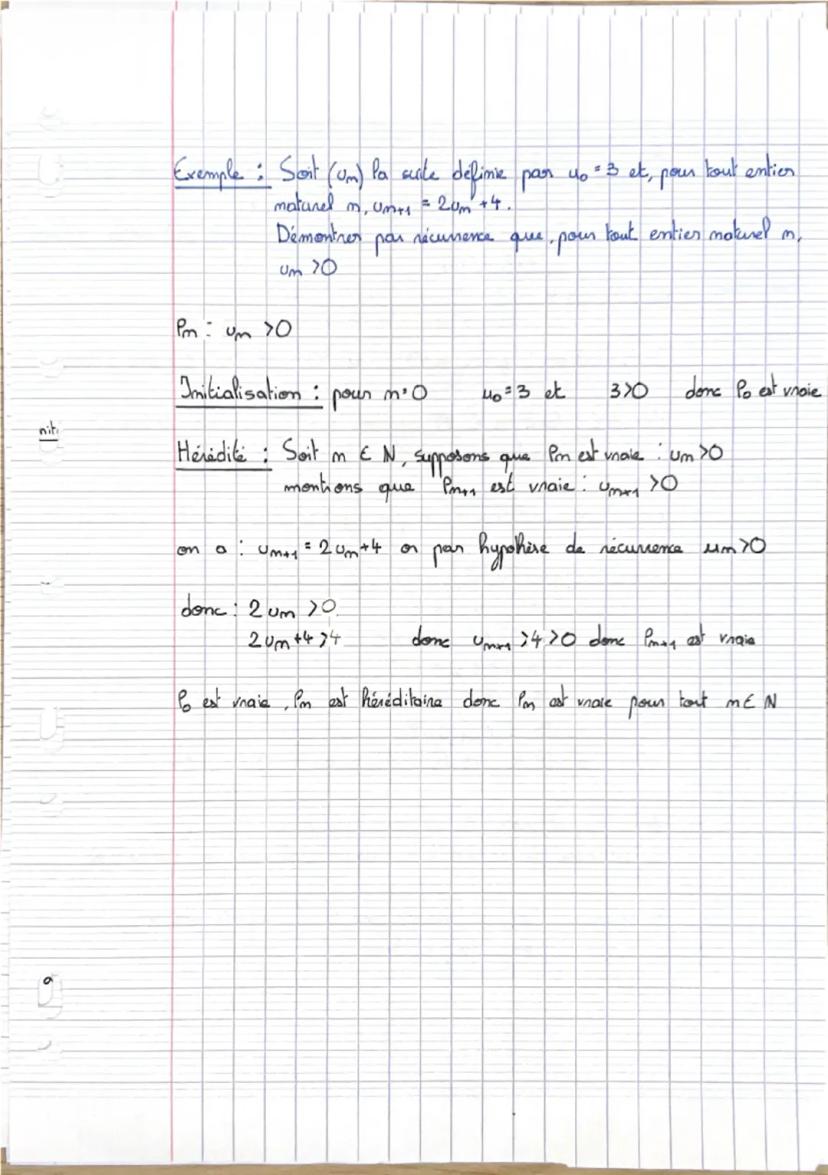 Exemple : Soit (un) la suite définie par u0 = 3 et, pour tout entier
naturel n, un+1 = 2un + 4.
Démontrer par récurrence que, pour tout entier naturel n,
un > 0
Pn : un > 0
Initialisation : pour n = 0 u0 = 3 et 3 > 0 donc P0 est vraie
nit
Hérédité : Soit n ∈ N, supposons que Pn est vraie : un > 0
montrons que Pn+1 est vraie : un+1 > 0
on a : un+1 = 2un + 4 or par hypothèse de récurrence un > 0
donc : 2un > 0
2un + 4 > 4 donc un+1 > 4 > 0 donc Pn+1 est vraie
P0 est vraie, Pn est héréditaire donc Pn est vraie pour tout n ∈ N